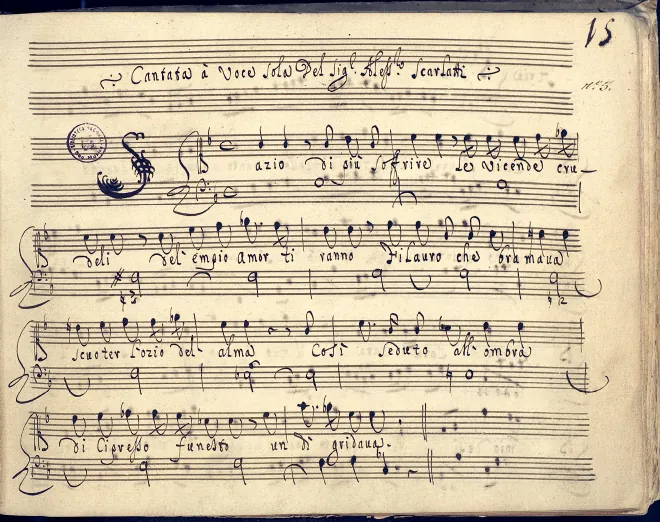 15
Cantata à Voce Sola Del Sig.r Aless.o Scarlatti
n.o 5.
Sazio di più soffrire le vicende cru-
deli del' empio Amor tiranno Filauro che bramaua
scuoter l'ozio del' alma Così seduto all' ombra
di Cipresso funesto un dì gridaua.